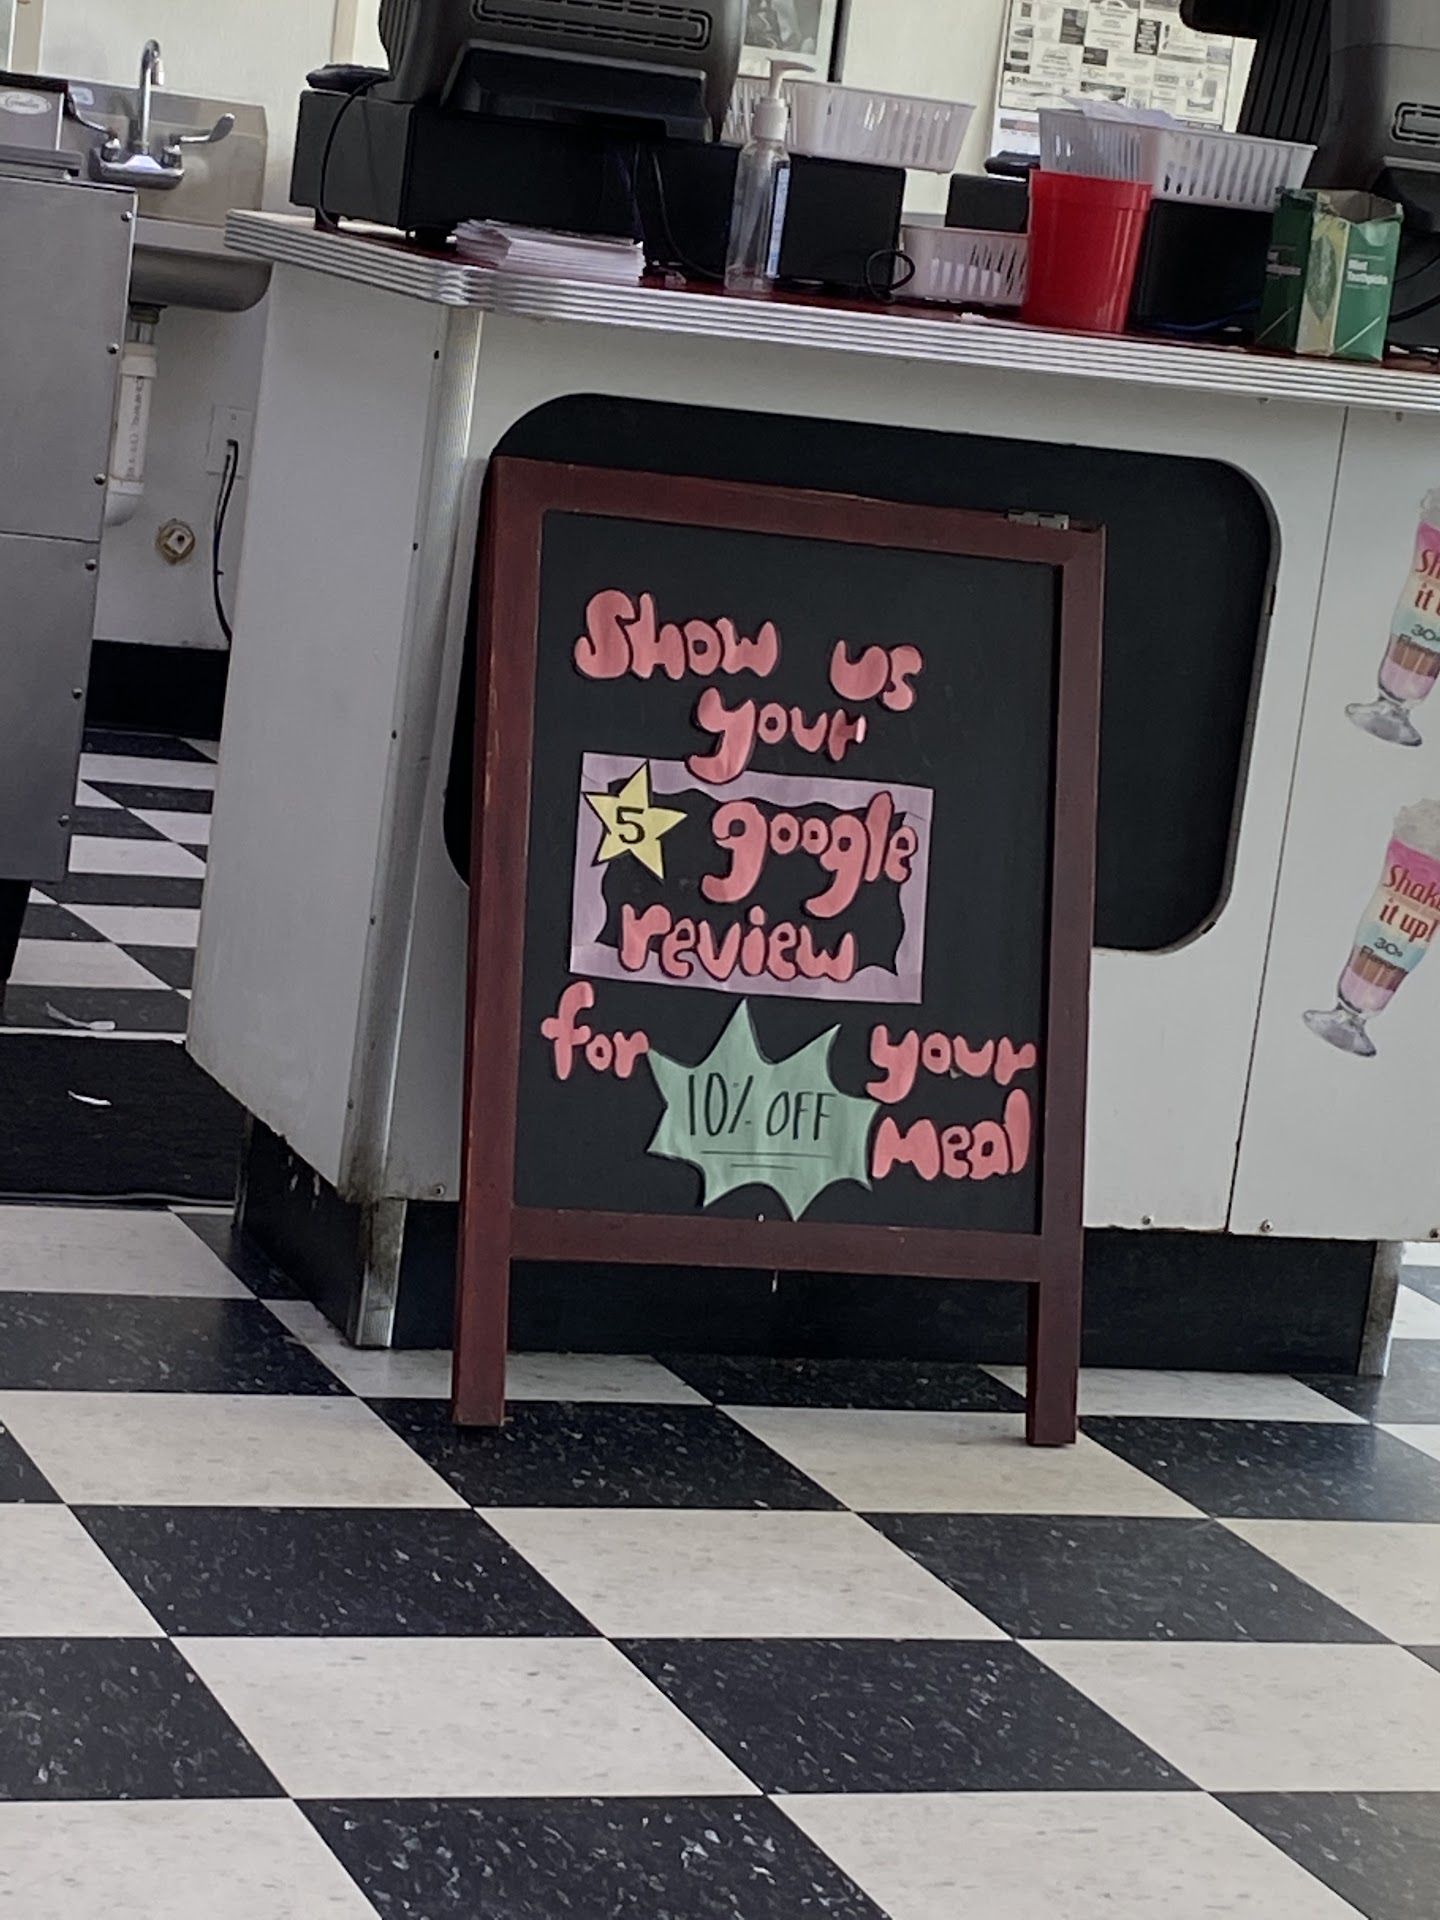 Show us
your
5 google
review
for 10% OFF your
meal
Mint
Toothpicks
it
30+
Shake
it up!
30+
Flavors